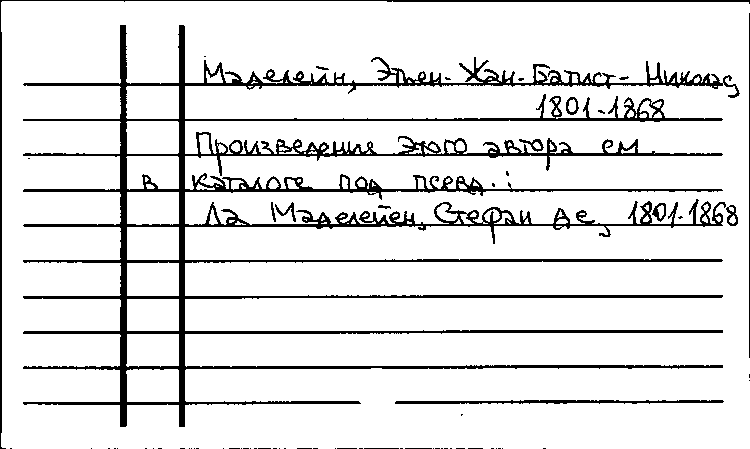 Маделейн, Этьен-Жан-Батист-Николас,
1801-1868
Произведения этого автора см.
в каталоге под псевд.:
Ла Маделейен, Стефан де, 1801-1868